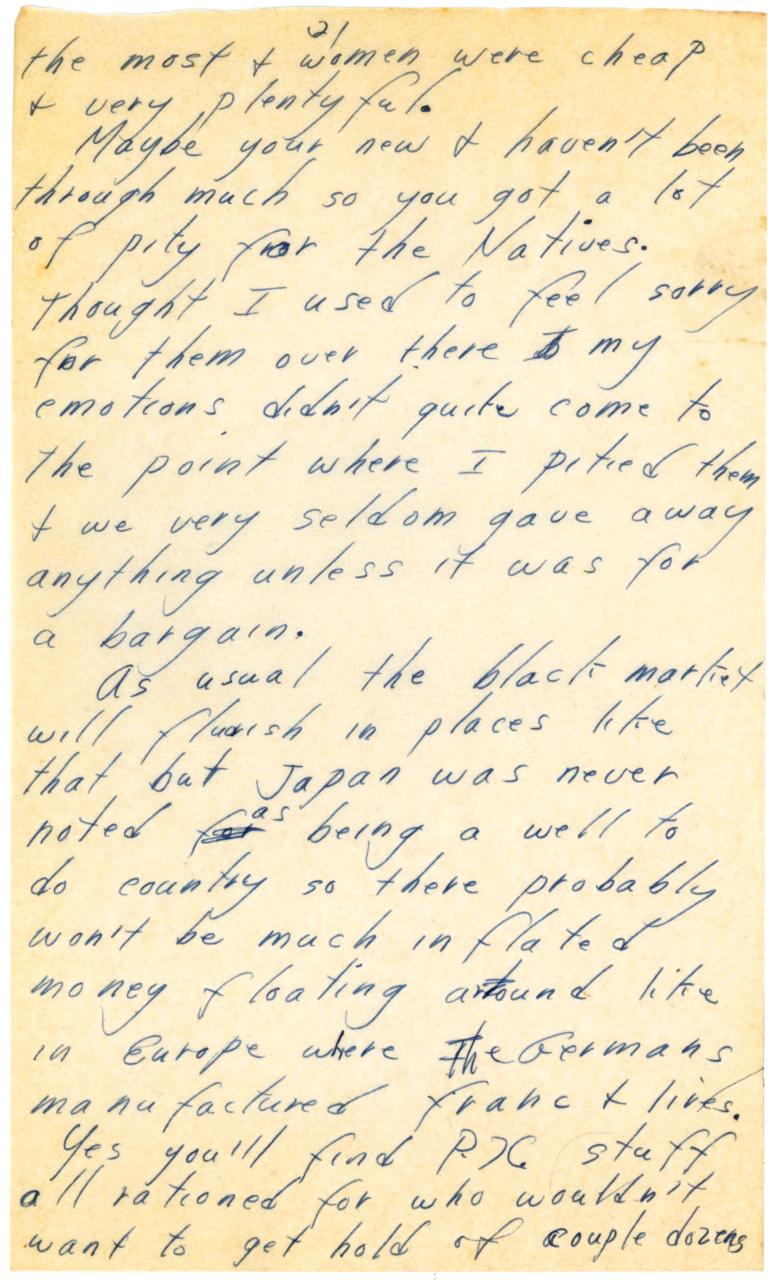 21
the most & women were cheap
& very plentyful.
Maybe your new & haven't been
through much so you got a lot
of pity for the Natives.
thought I used to feel sorry
for them over there to my
emotions didn't quite come to
the point where I pitied them
& we very seldom gave away
anything unless it was for
a bargain.
As usual the black market
will flurish in places like
that but Japan was never
noted as being a well to
do country so there probably
won't be much inflated
money floating around like
in Europe where the Germans
manufactured franc & lires.
Yes you'll find P.X. stuff
all rationed for who wouldn't
want to get hold of couple dozens